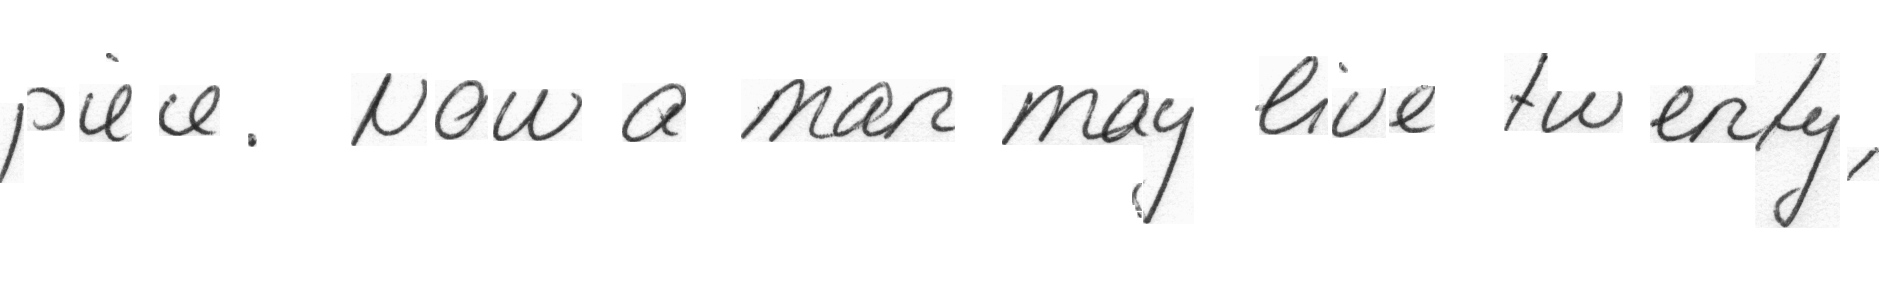 piece. Now a man may live twenty,